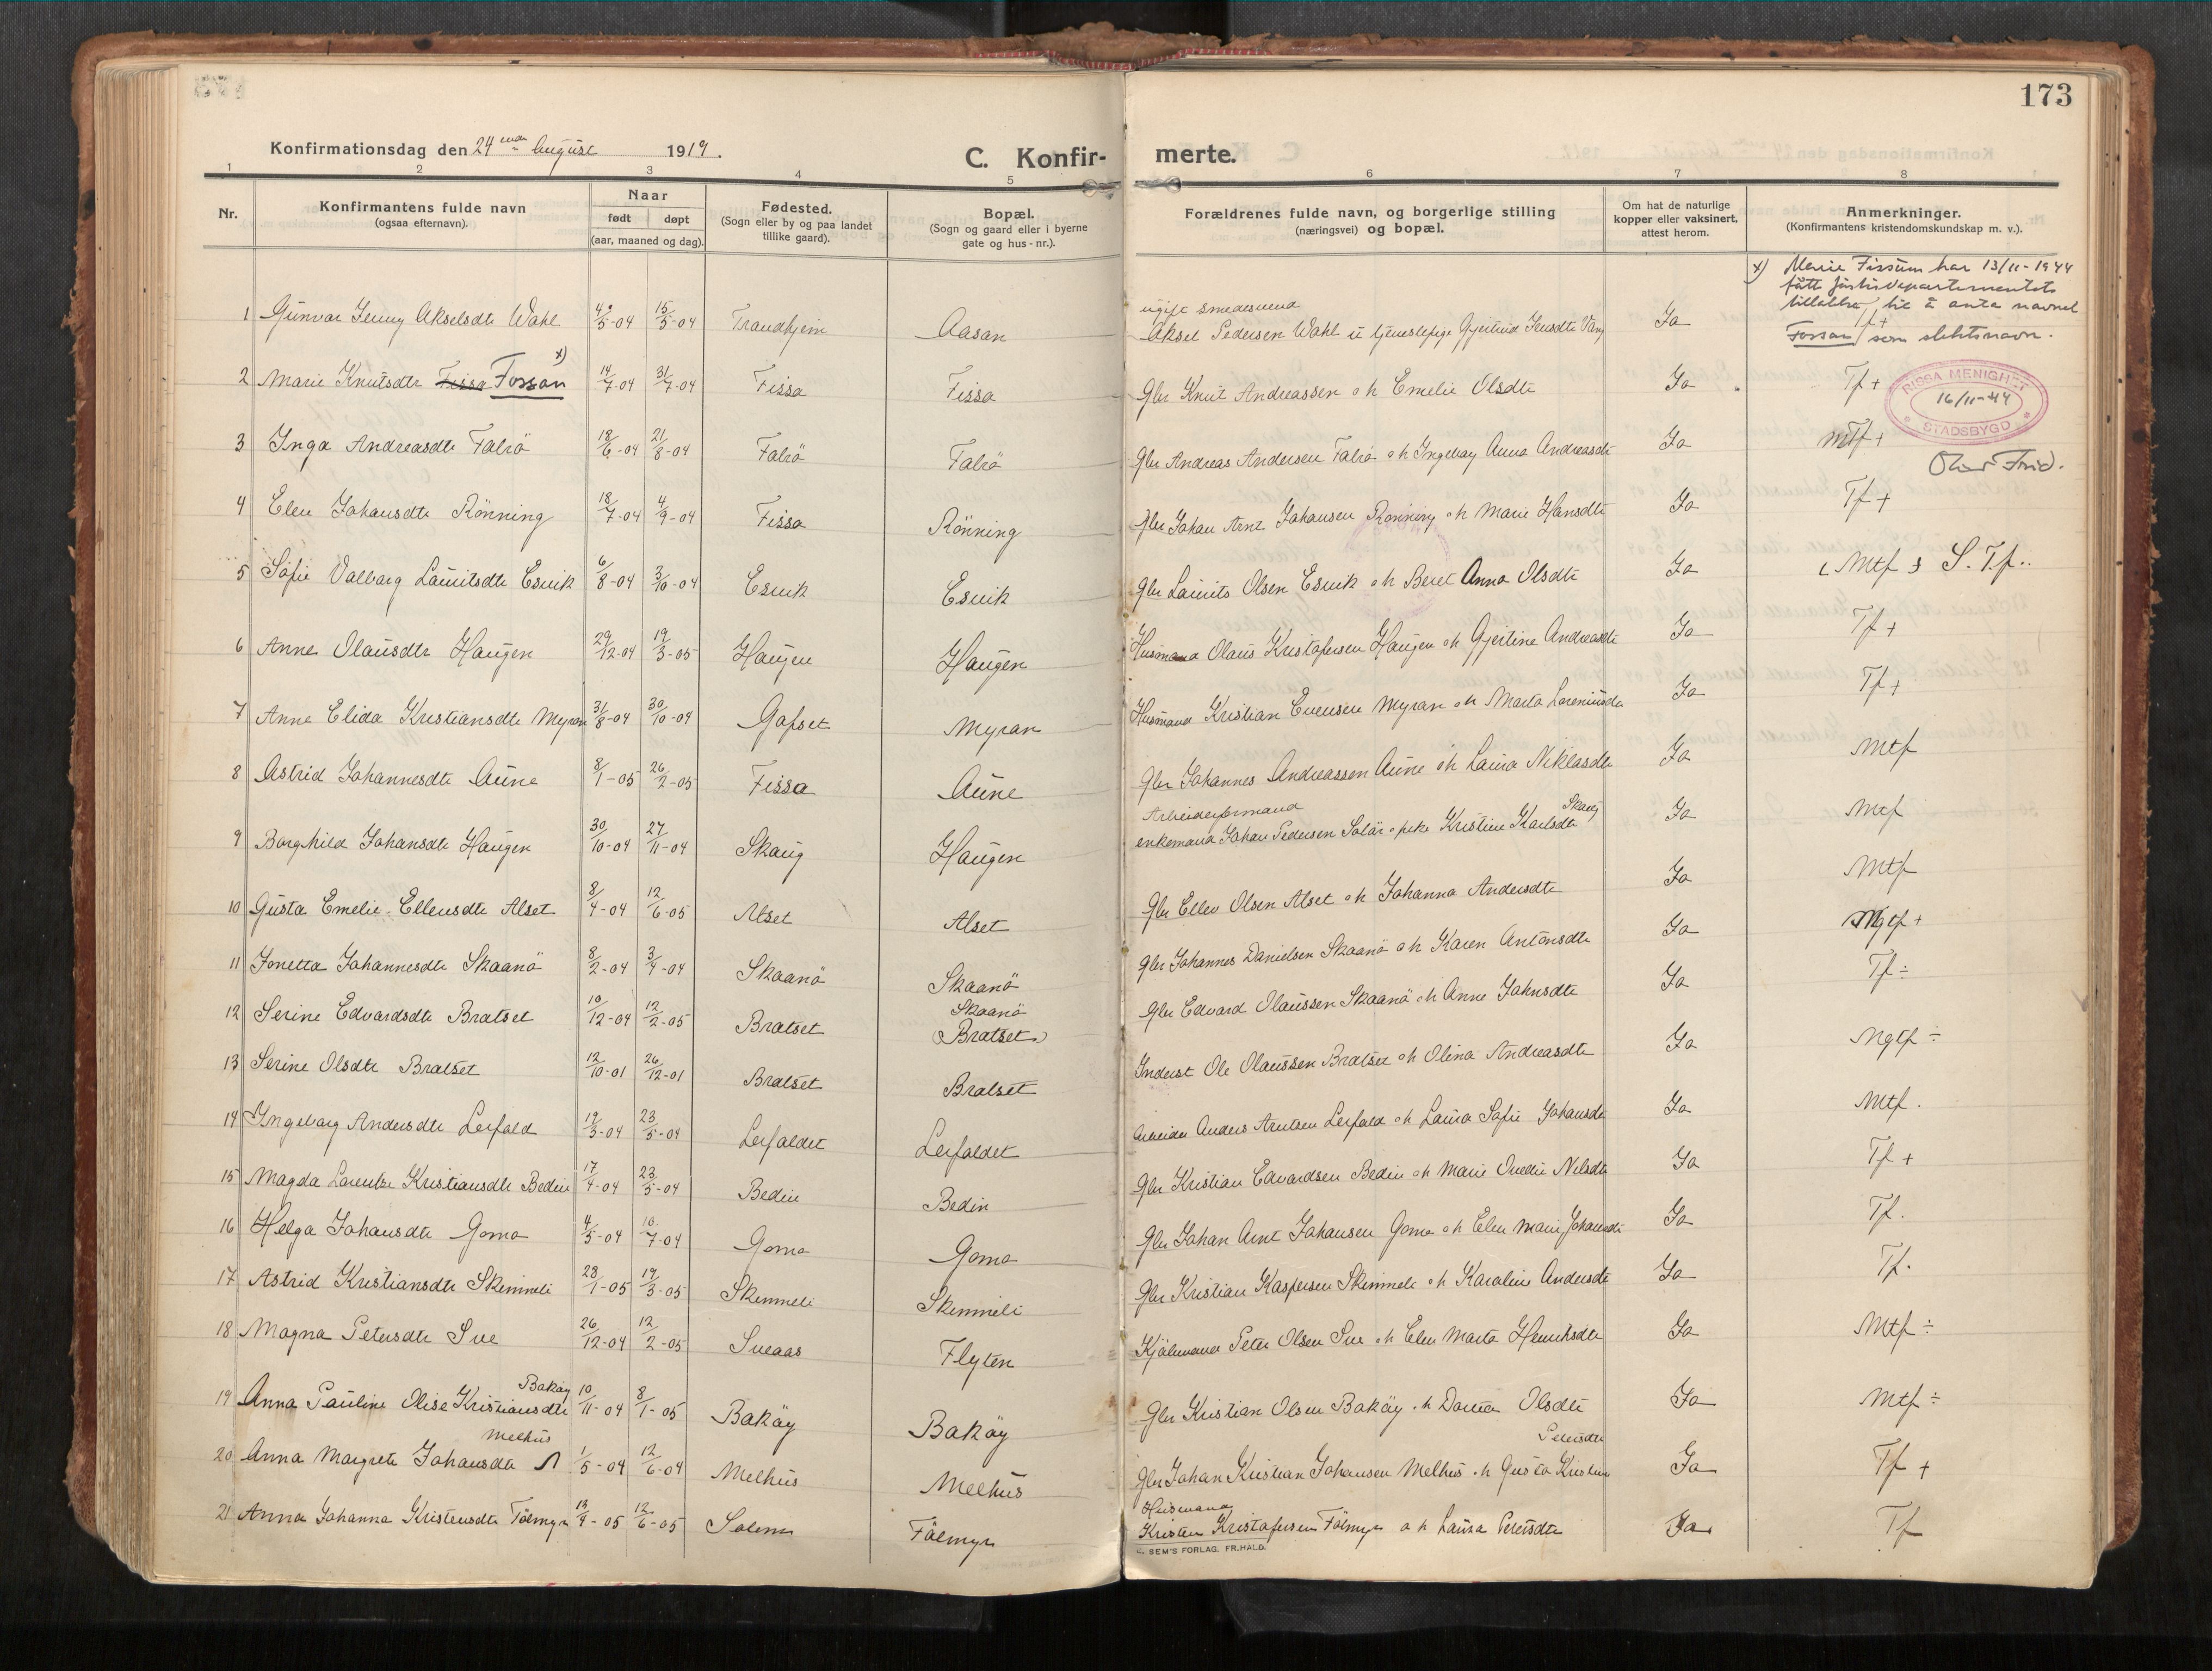 173
Konfirmationsdag den 24 August 1919.
C. Konfir- merte.
1 2 3 4 5 6 7 8
Nr.
Konfirmantens fulde navn
(ogsaa efternavn).
Naar
født døpt
(aar, maaned og dag).
Fødested.
(Sogn eller by og paa landet
tillike gaard).
Bopæl.
(Sogn og gaard eller i byerne
gate og hus-nr.).
Forældrenes fulde navn, og borgerlige stilling
(næringsvei) og bopæl.
Om hat de naturlige
kopper eller vaksinert,
attest herom.
Anmerkninger.
(Konfirmantens kristendomskundskap m. v.).
x) Marie Fissum har 13/11-1944
fått justisdepartementets
tillatelse til å anta navnet
Tf+
Fossan som slektsnavn.
ugift smedesvend
1 Gunvor Jenny Akselsdtr Wahl 4/5-04 15/5-04 Trondhjem Aasan Aksel Pedersen Wahl u tjenestepige Gjertrud Jensdtr Vang Ja
2 Marie Knutsdtr Fissa Fossan x) 14/7-04 31/7-04 Fissa Fissa Gbr Knut Andreassen o h Emelie Olsdtr Ja Tf+
RISSA MENIGHET
16/11-44
STADSBYGD
3 Inga Andreasdtr Falrö 18/6-04 21/8-04 Falrö Falrö Gbr Andreas Andersen Falrö o h Ingeborg Anna Andreasdtr Ja Mtf+
4 Elen Johansdtr Rönning 18/7-04 4/9-04 Fissa Rönning Gbr Johan Arnt Johansen Rönning o h Marie Hansdtr Ja Tf+
5 Sofie Valborg Lauritsdtr Esvik 6/8-04 3/10-04 Esvik Esvik Gbr Laurits Olsen Esvik o h Beret Anna Olsdtr Ja (Mtf) S. Tf.
6 Anne Olausdtr Haugen 29/12-04 19/3-05 Haugen Haugen Husmand Olaus Kristofersen Haugen o h Gjertine Andreasdtr Ja Tf+
7 Anne Elida Kristiansdtr Myran 31/8-04 30/10-04 Gafset Myran Husmand Kristian Evensen Myran o h Marta Lorensdtr Ja Tf+
8 Astrid Johannesdtr Aune 8/1-05 26/2-05 Fissa Aune Gbr Johannes Andreassen Aune o h Laura Niklasdtr Ja Mtf
Arbeiderformand Skaug
9 Borghild Johansdtr Haugen 30/10-04 27/11-04 Skaug Haugen enkemand Johan Pedersen Solör o pike Kristine Karlsdtr Ja Mtf
10 Gusta Emelie Ellensdtr Alset 8/4-04 12/6-05 Alset Alset Gbr Ellev Olsen Alset o h Johanna Andersdtr Ja Mtf
11 Jonetta Johannesdtr Skaanö 8/2-04 3/4-04 Skaanö Skaanö Gbr Johannes Danielsen Skaanö o h Karen Antonsdtr Ja Mgtf+
12 Serine Edvardsdtr Bratset 10/12-04 12/2-05 Bratset Skaanö (Bratset) Gbr Edvard Olaussen Skaanö o h Anne Johnsdtr Ja Tf÷
13 Serine Olsdtr Bratset 12/10-01 26/12-01 Bratset Bratset Inderst Ole Olaussen Bratset o h Olina Andreasdtr Ja Ngtf÷
14 Ingeborg Andersdtr Leifald 19/3-04 23/5-04 Leifaldet Leifaldet Arbeider Anders Arntsen Leifald o h Laura Sofie Johansdtr Ja Mtf.
15 Magda Lorentze Kristiansdtr Bedin 17/4-04 23/5-04 Bedin Bedin Gbr Kristian Edvardsen Bedin o h Marie Ovedie Nilsdtr Ja Tf+
16 Helga Johansdtr Gomo 4/5-04 10/7-04 Gomo Gomo Gbr Johan Arnt Johansen Gomo o h Elen Marie Johansdtr Ja Tf.
17 Astrid Kristiansdtr Skimmeli 28/1-05 19/3-05 Skimmeli Skimmeli Gbr Kristian Kaspersen Skimmeli o h Karoline Andersdtr Ja Tf.
18 Magna Petersdtr Sve 26/12-04 12/2-05 Sveaas Flyten Peter Olsen Sve o h Elen Marta Henriksdtr Ja Mtf÷
Baköy
19 Anna Pauline Olise Kristiansdtr 10/11-04 8/1-05 Baköy Baköy Gbr Kristian Olsen Baköy o h Dortea Olsdtr Ja Mtf÷
Melhus Petersdtr
20 Anna Margrete Johansdtr 1/5-04 12/6-04 Melhus Melhus Gbr Johan Kristian Johansen Melhus o h Gusta Kristine Ja Tf+
Husmand
21 Anna Johanna Kristensdtr Fölmyr 13/4-05 12/6-05 Solem Fölmyr Kristen Kristofersen Fölmyr o h Laura Petersdtr Ja Tf
SEM'S FORLAG. FR.HALD.